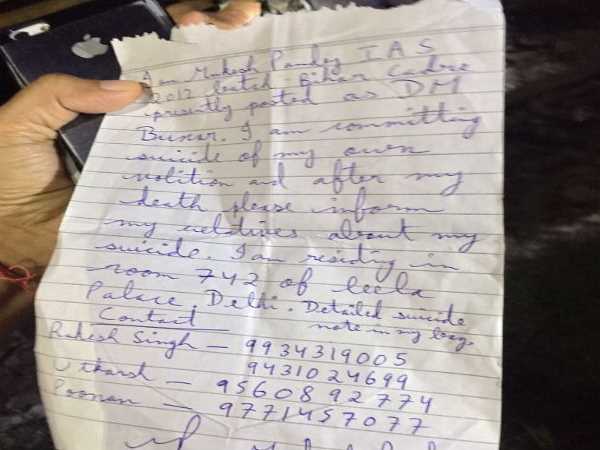 I am Mukesh Pandey IAS
2012 batch Bihar Cadre
presently posted as DM
Buxar. I am committing
suicide of my own
volition and after my
death please inform
my relatives about my
suicide. I am residing in
room 742 of Leela
Palace Delhi. Detailed suicide
note in my bag.
Contact
Rakesh Singh — 9934319005
9431024699
Utkarsh — 9560892774
Poonam — 9771457077